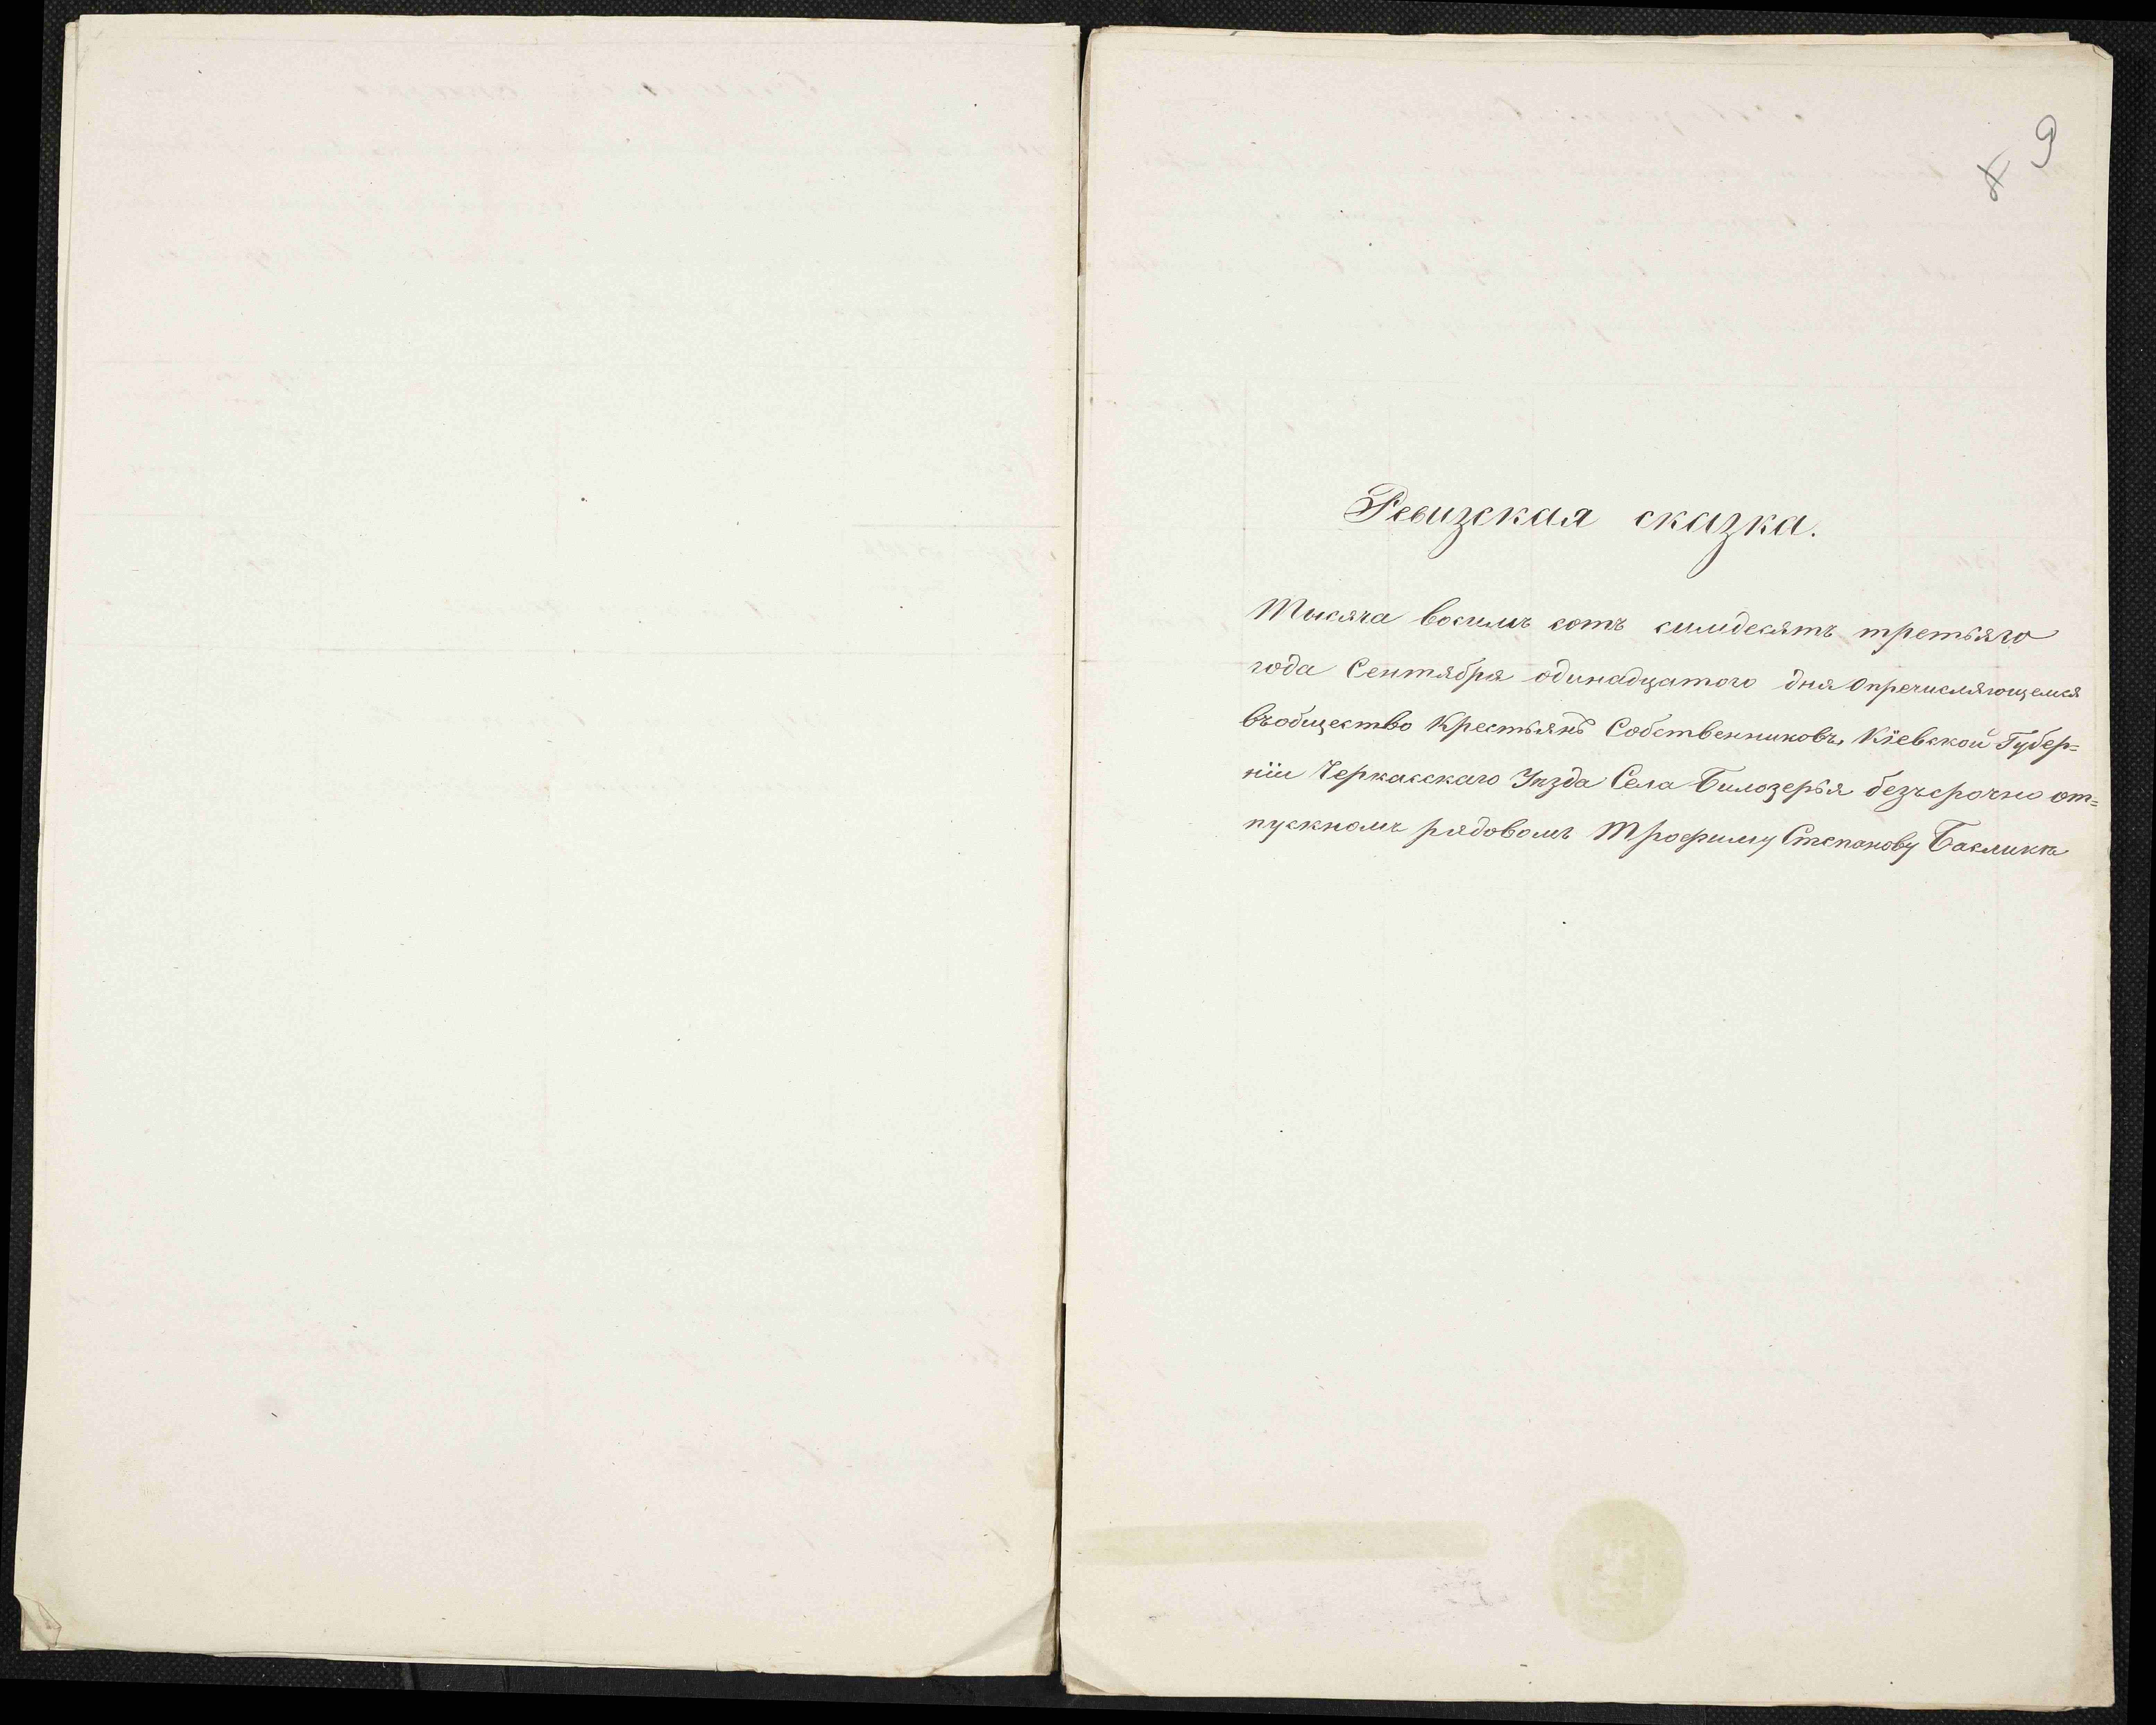 9
8
Ревизская сказка.
Тысяча восимъ сотъ симидесятъ третьяго
года Сентября одинадцатого дня Опречисляющемся
въобщество Крестьянъ Собственниковъ, Кіевской Губер=
ніи Черкасскаго Уѣзда Села Билозерья безъсрочно от=
пускномъ рядовомъ Трофиму Степанову Баслыкѣ